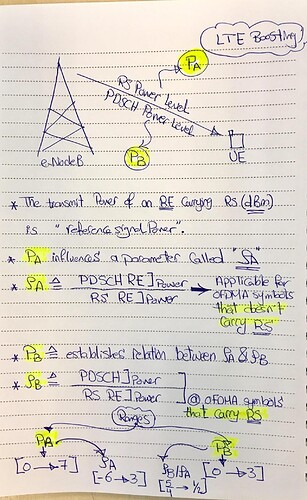 LTE Boosting
PA
RS Power Level
PDSCH Power Level
PB
e-NodeB
UE
* The transmit Power of an RE Carrying RS (dBm)
is "reference signal Power".
* PA influences a parameter Called "ρA"
* ρA ≜ PDSCH RE] Power / RS RE] Power → Applicable for
OFDMA symbols
that doesn't
carry RS
* PB ≜ establishes relation between ρA & ρB
* ρB ≜ PDSCH] Power / RS RE] Power
@ OFDMA symbols
that carry RS
Ranges
PA PB
[0 → 7] ρA ρB/ρA [0 → 3]
[-6 → 3] [5/4 → 1/2]